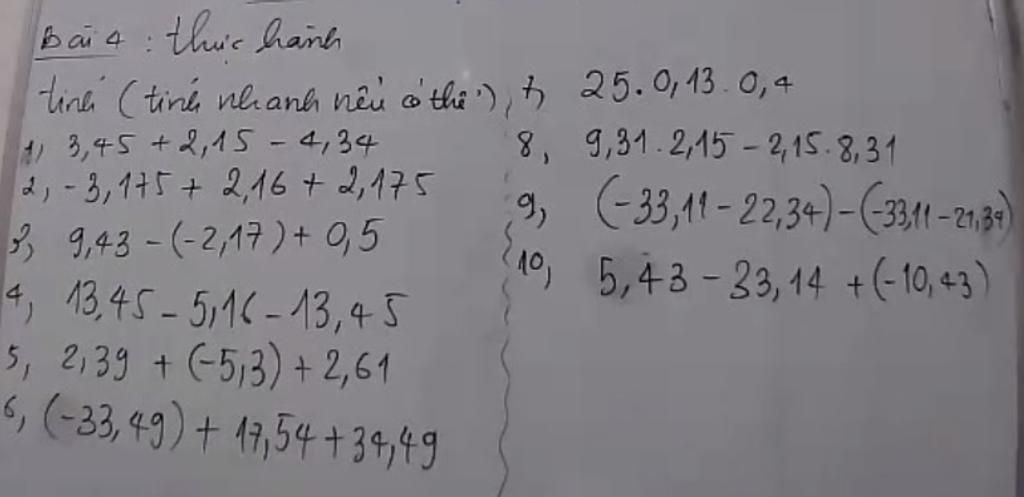 Bài 4 : thực hành
tính (tính nhanh nếu có thể)
1) 3,45 + 2,15 - 4,34
2, -3,175 + 2,16 + 2,175
3, 9,43 - (-2,17) + 0,5
4, 13,45 - 5,16 - 13,45
5, 2,39 + (-5,3) + 2,61
6, (-33,49) + 17,54 + 34,49
7, 25.0,13.0,4
8, 9,31.2,15 - 2,15.8,31
9, (-33,11 - 22,34) - (-33,11 - 21,34)
10, 5,43 - 33,14 + (-10,43)